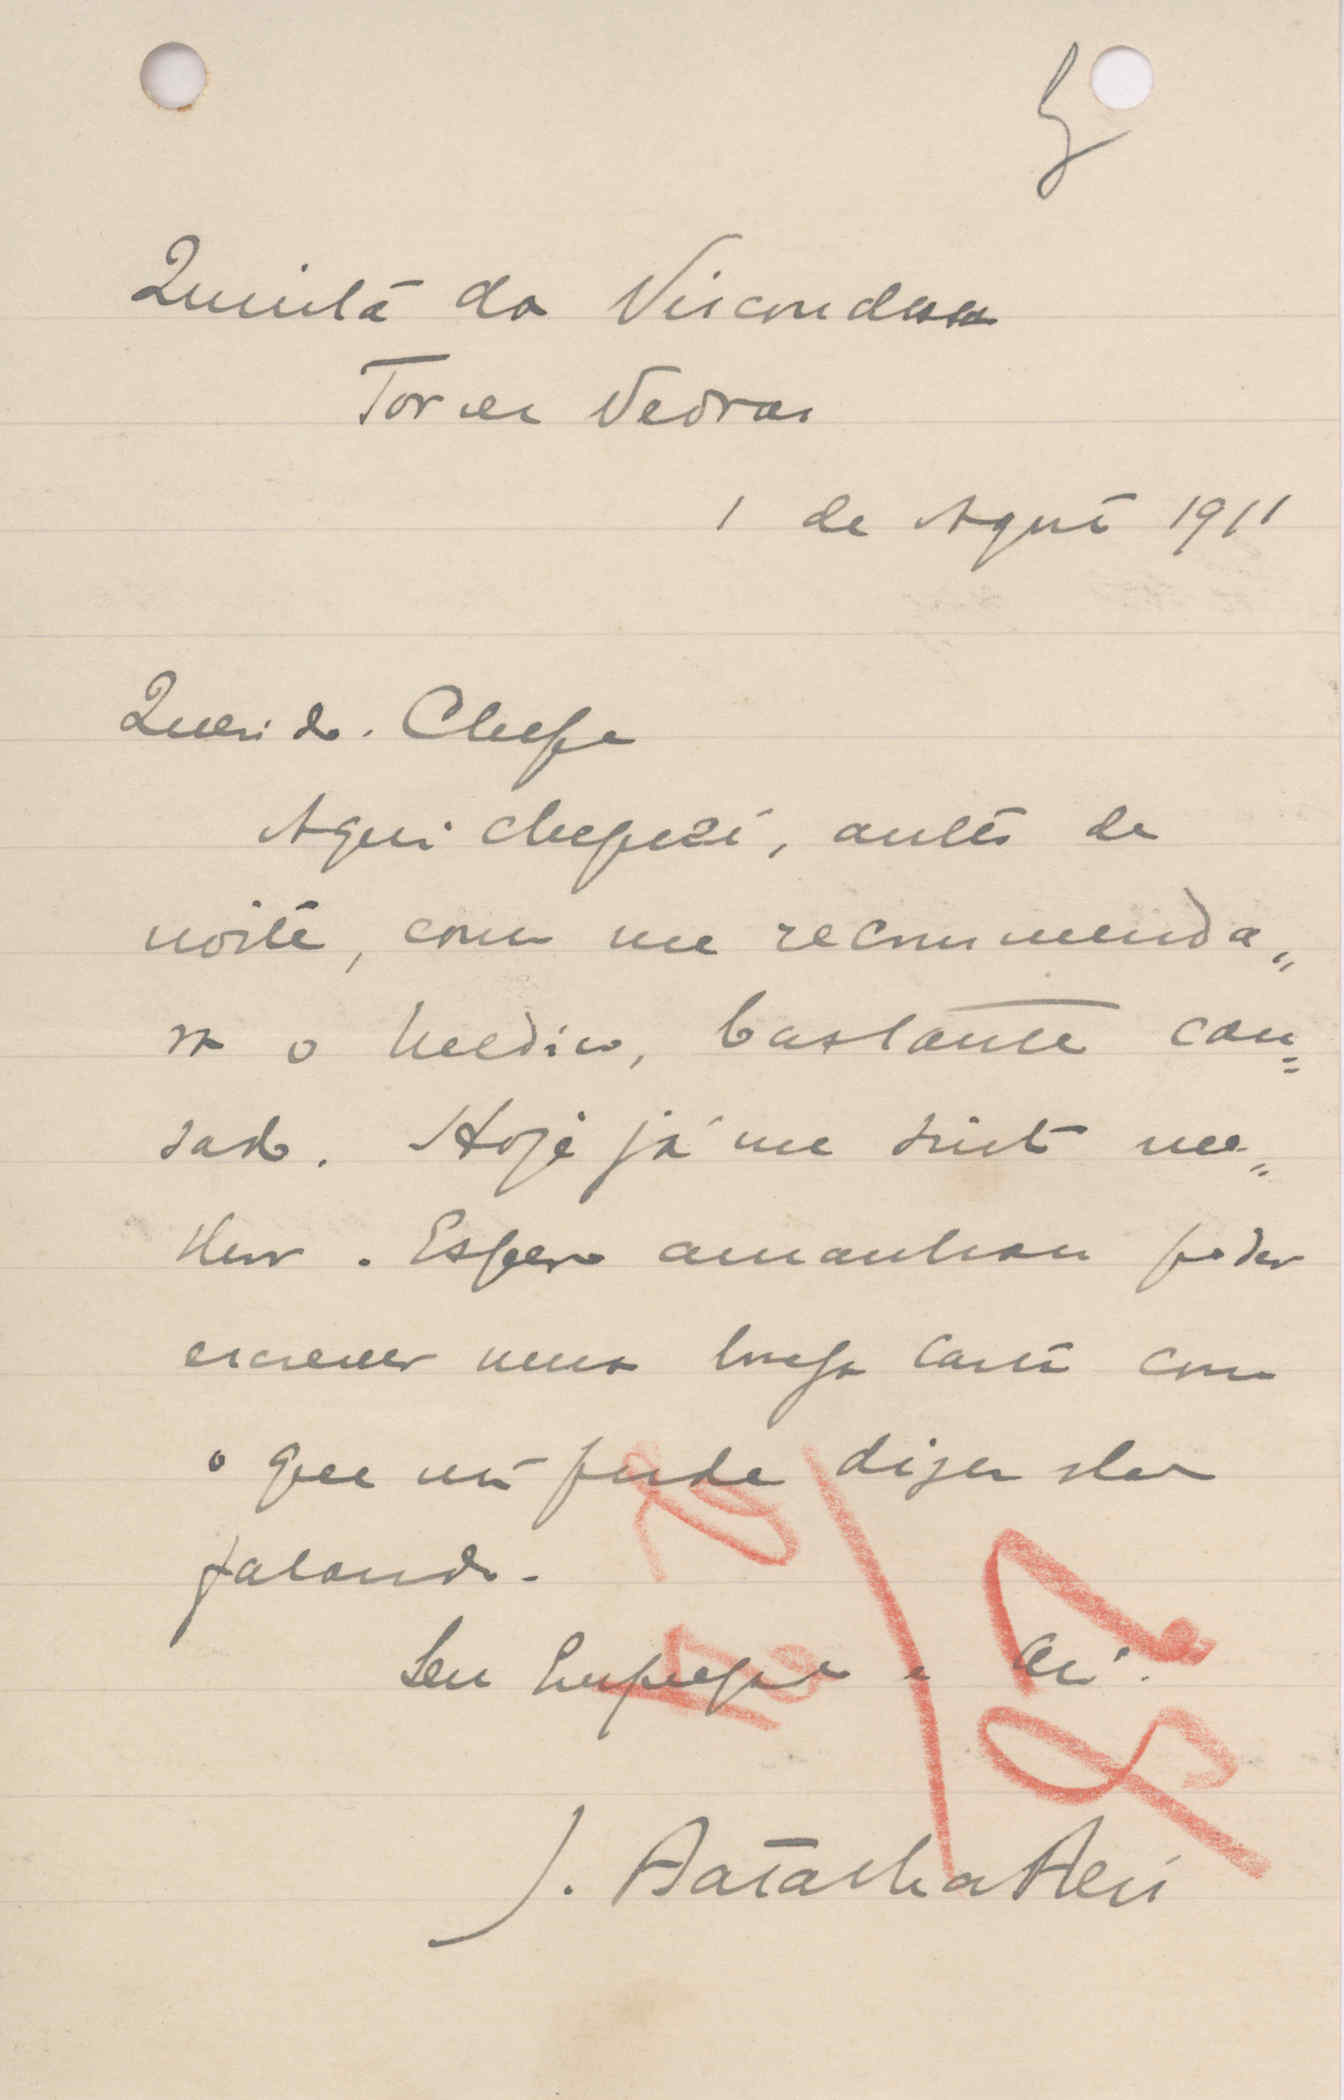 Quinta da Viscondessa
Torres Vedras
1 de Agosto 1911
Querido Cheffe
Aqui cheguei, antes de
noite, como me recommenda-
ra o Medico, bastante can-
sado. Hoje já me sinto me-
lhor. Espero amanhan poder
escrever uma longa carta com
o que não pude dizer-lhe
falando.
Seu
J. Batalha Reis